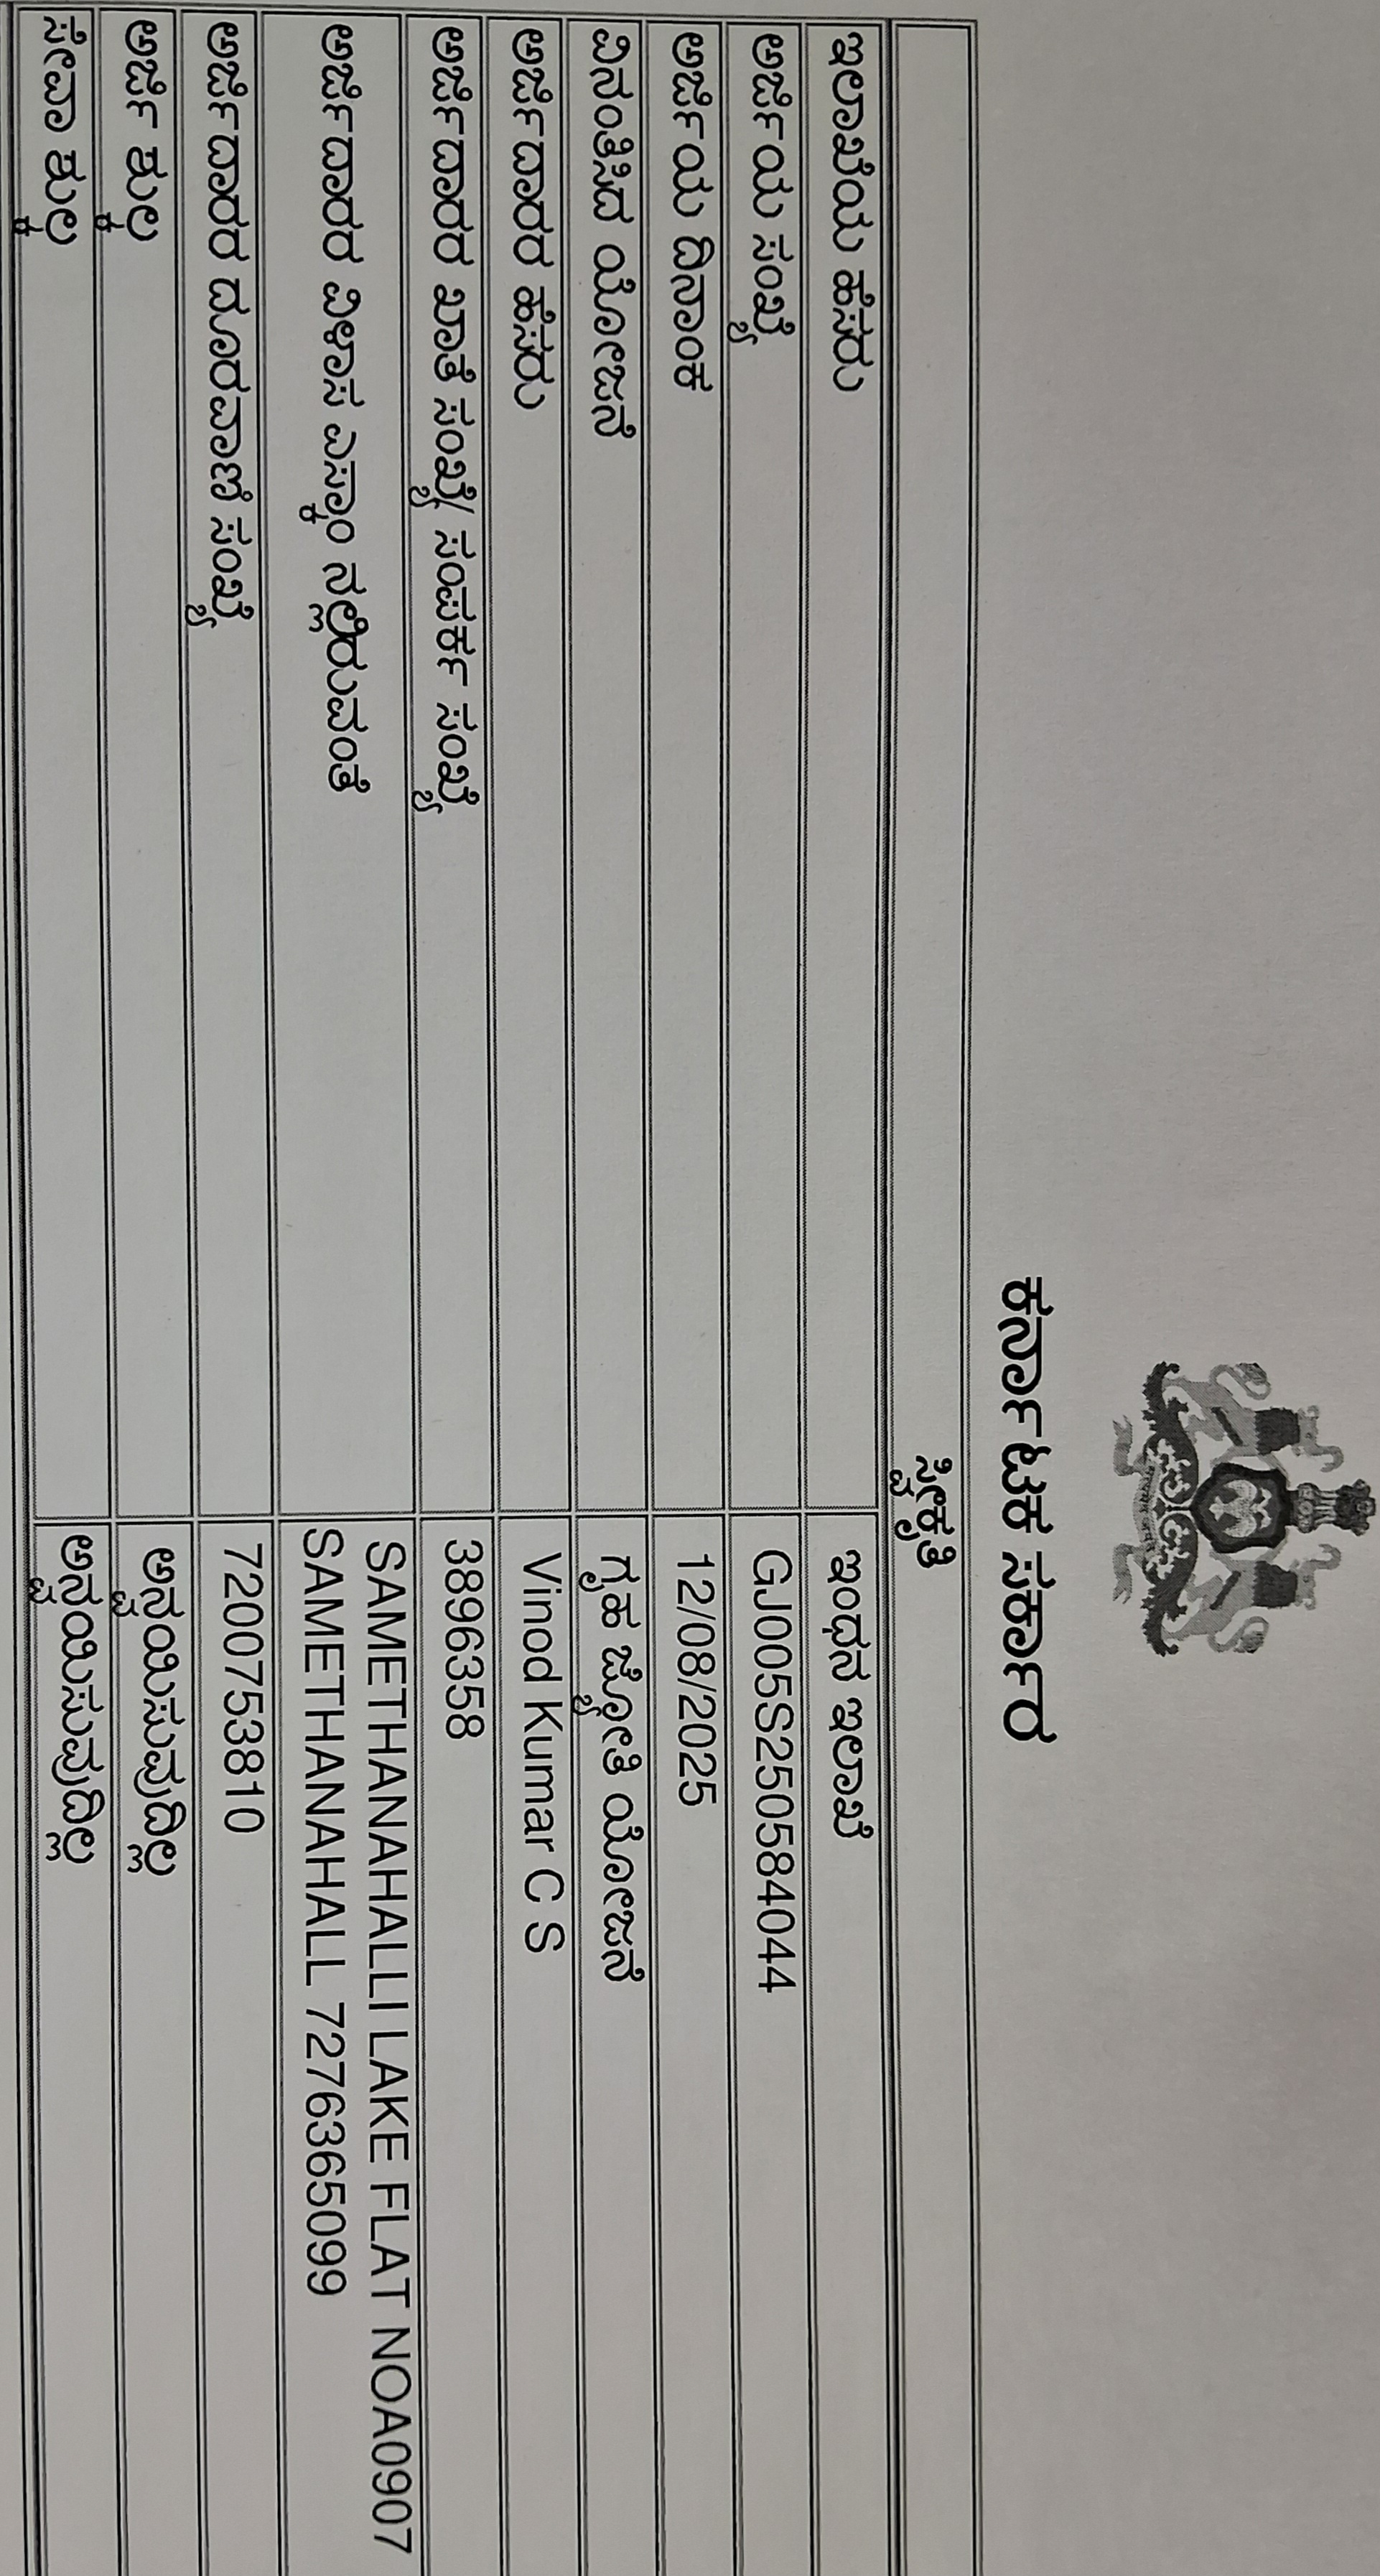 ಕರ್ನಾಟಕ ಸರ್ಕಾರ
ಸ್ವೀಕೃತಿ
ಇಲಾಖೆಯ ಹೆಸರು ಇಂಧನ ಇಲಾಖೆ
ಅರ್ಜಿಯ ಸಂಖ್ಯೆ GJ005S25058404​4
ಅರ್ಜಿಯ ದಿನಾಂಕ 12/08/2025
ವಿನಂತಿಸಿದ ಯೋಜನೆ ಗೃಹ ಜ್ಯೋತಿ ಯೋಜನೆ
ಅರ್ಜಿದಾರರ ಹೆಸರು Vinod Kumar C S
ಅರ್ಜಿದಾರರ ಖಾತೆ ಸಂಖ್ಯೆ/ ಸಂಪರ್ಕ ಸಂಖ್ಯೆ 3896358
ಅರ್ಜಿದಾರರ ವಿಳಾಸ ಎಸ್ಕಾಂ ನಲ್ಲಿರುವಂತೆ SAMETHANAHALLI LAKE FLAT NOA0907
SAMETHANAHALL 7276365099
ಅರ್ಜಿದಾರರ ದೂರವಾಣಿ ಸಂಖ್ಯೆ 7200753810
ಅರ್ಜಿ ಶುಲ್ಕ ಅನ್ವಯಿಸುವುದಿಲ್ಲ
ಸೇವಾ ಶುಲ್ಕ ಅನ್ವಯಿಸುವುದಿಲ್ಲ